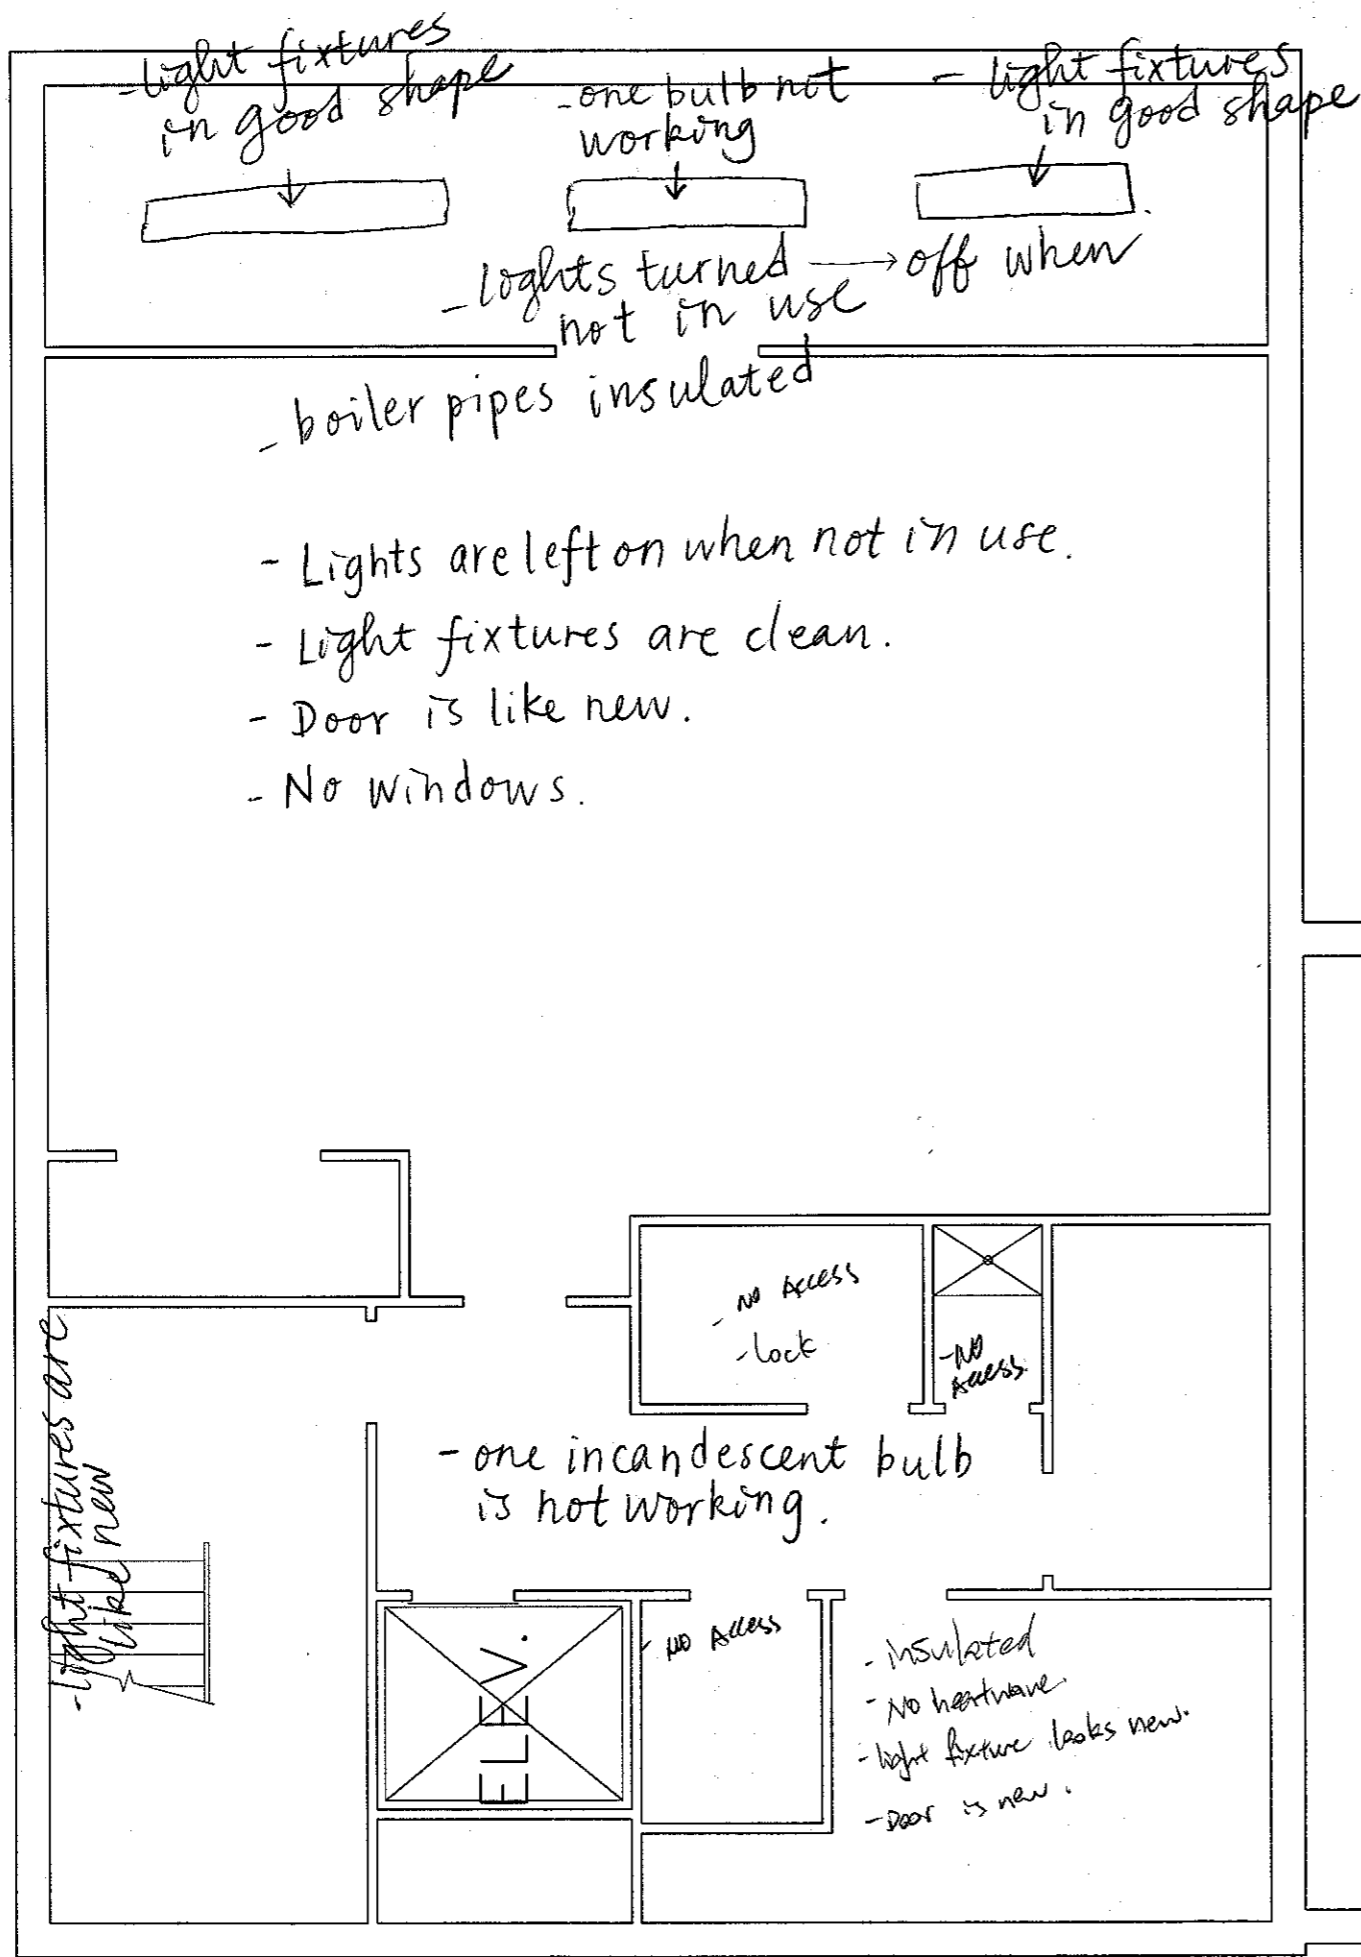 - light fixtures
in good shape
- one bulb not
working
- light fixtures
in good shape
- lights turned → off when
not in use
- boiler pipes insulated
- Lights are left on when not in use.
- Light fixtures are clean.
- Door is like new.
- No windows.
- NO Access
- lock
- NO
Access
- light fixtures are
like new
- one incandescent bulb
is not working.
ELEV.
- NO Access
- insulated
- No
- light fixture looks new.
- Door is new.